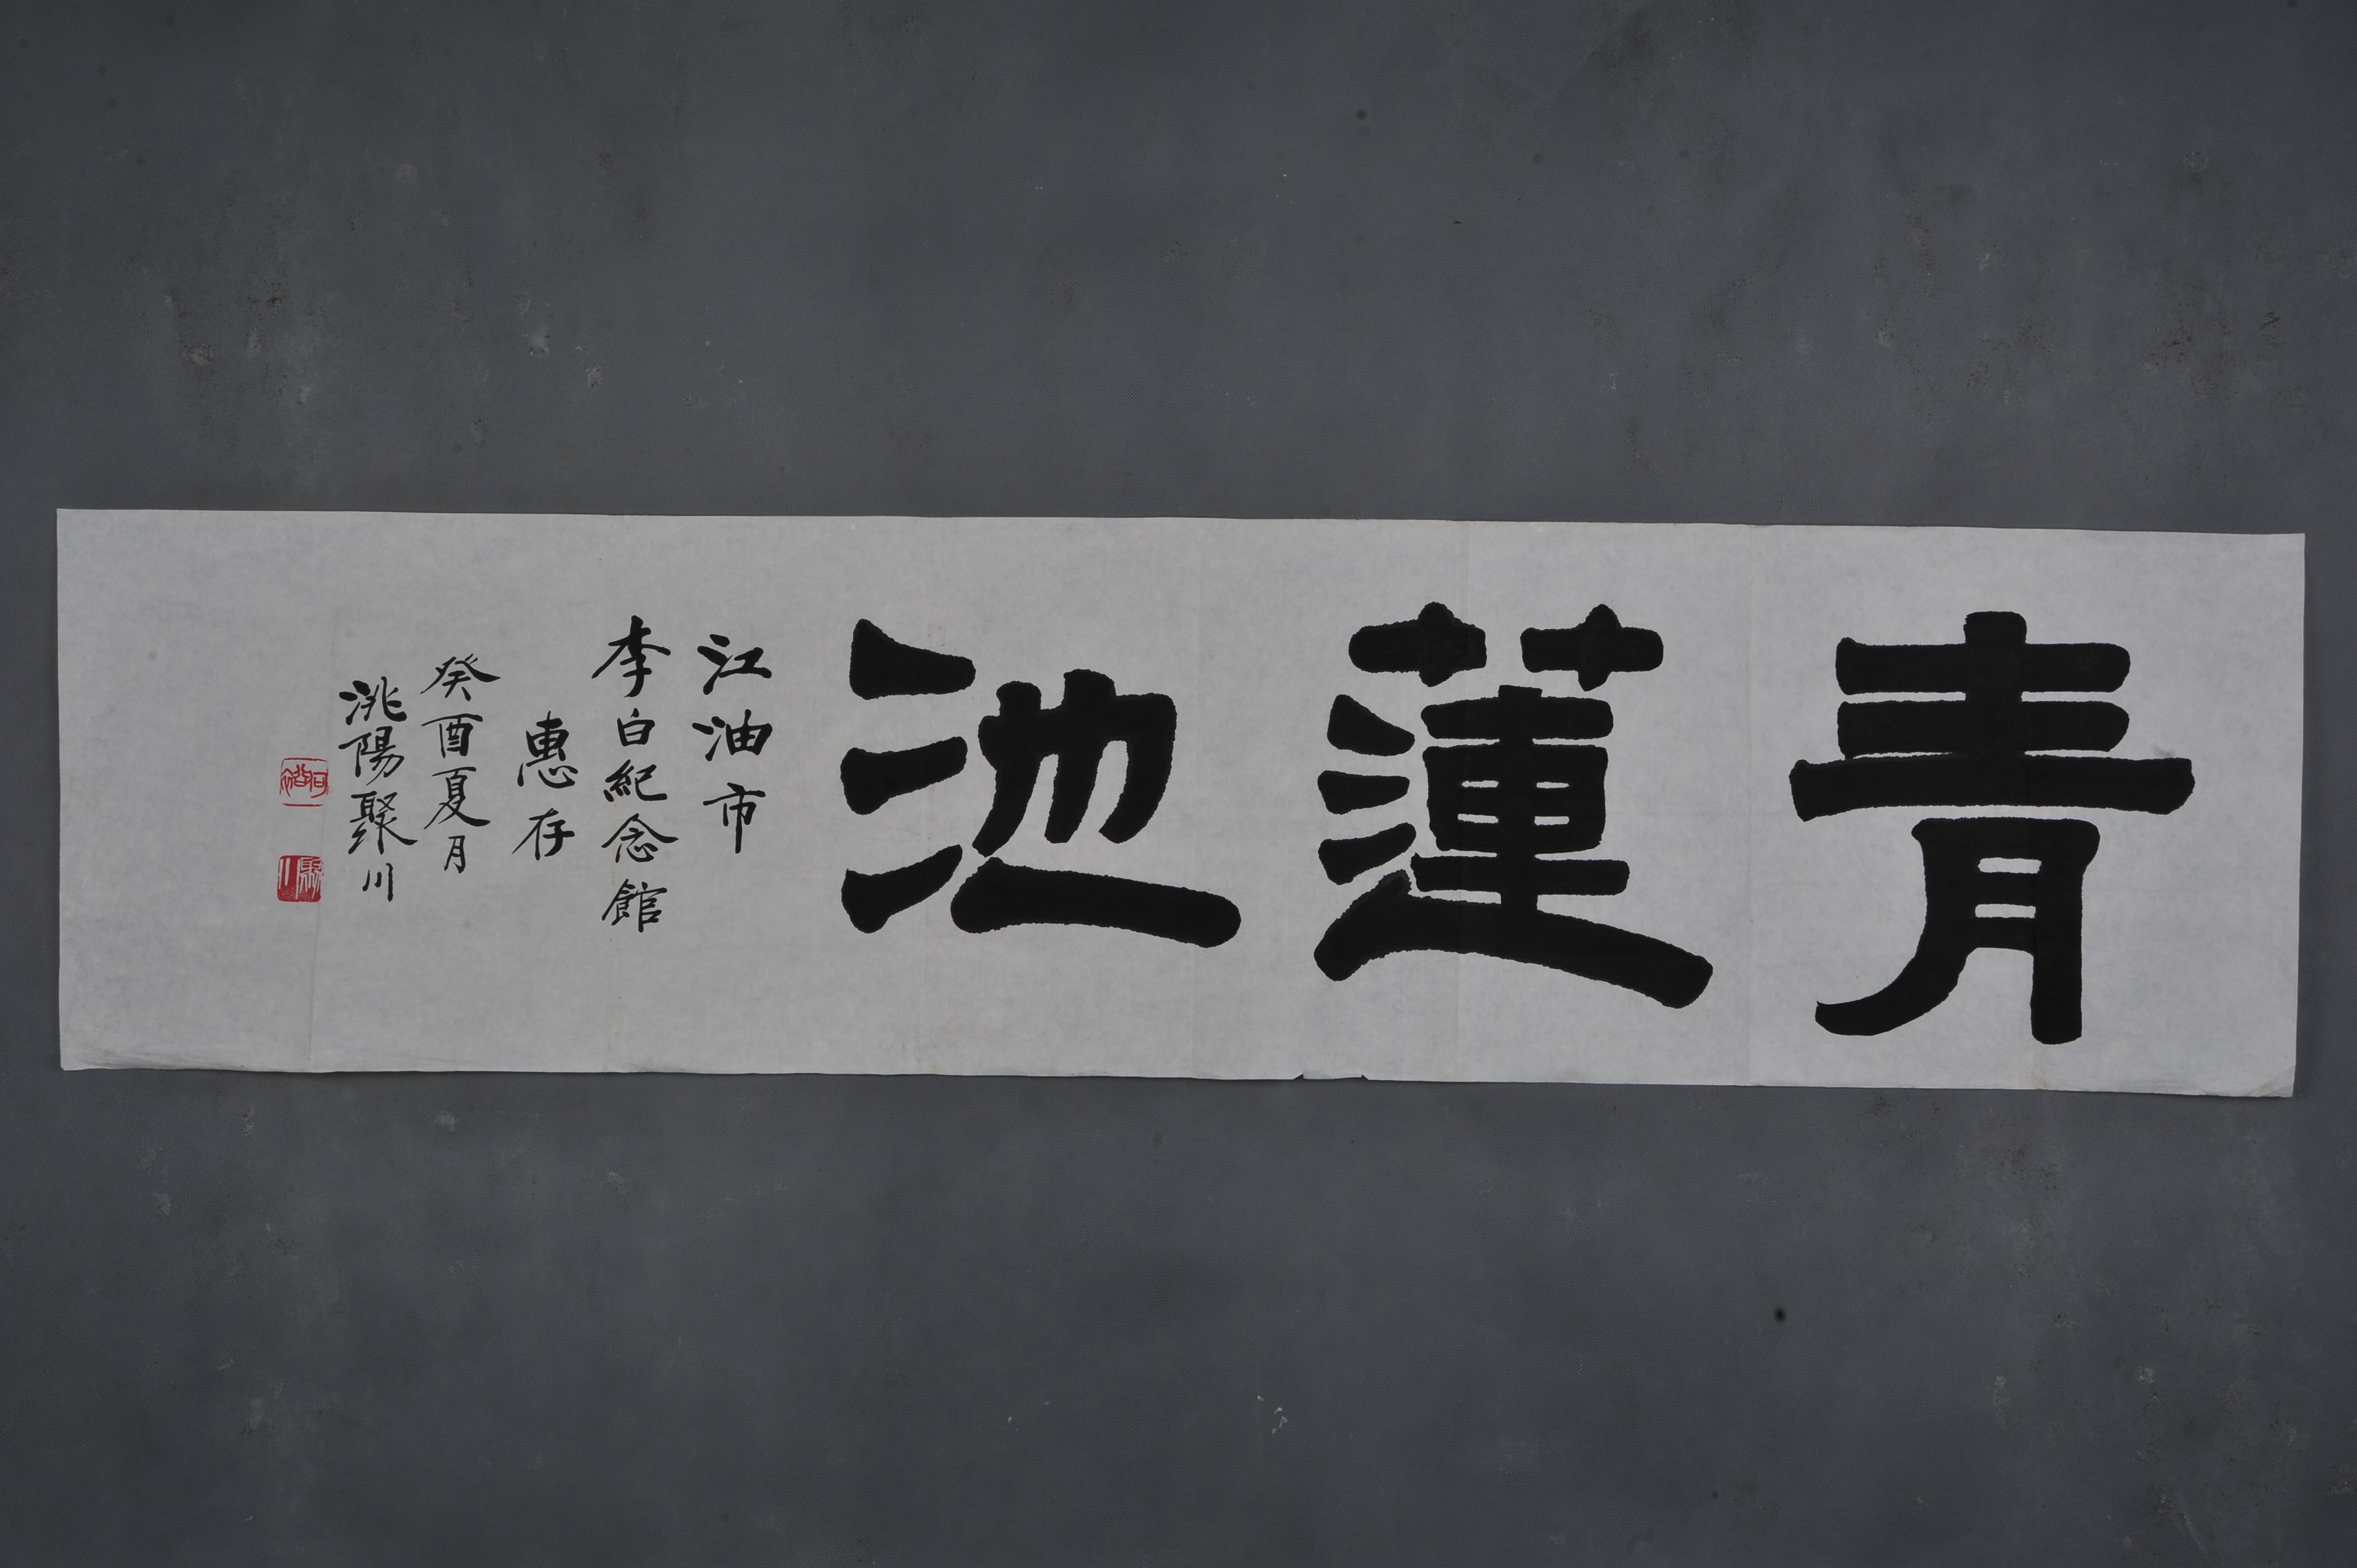 青蓮池
江油市
李白紀念館
惠存
癸酉夏月
洮陽聚川
聚川